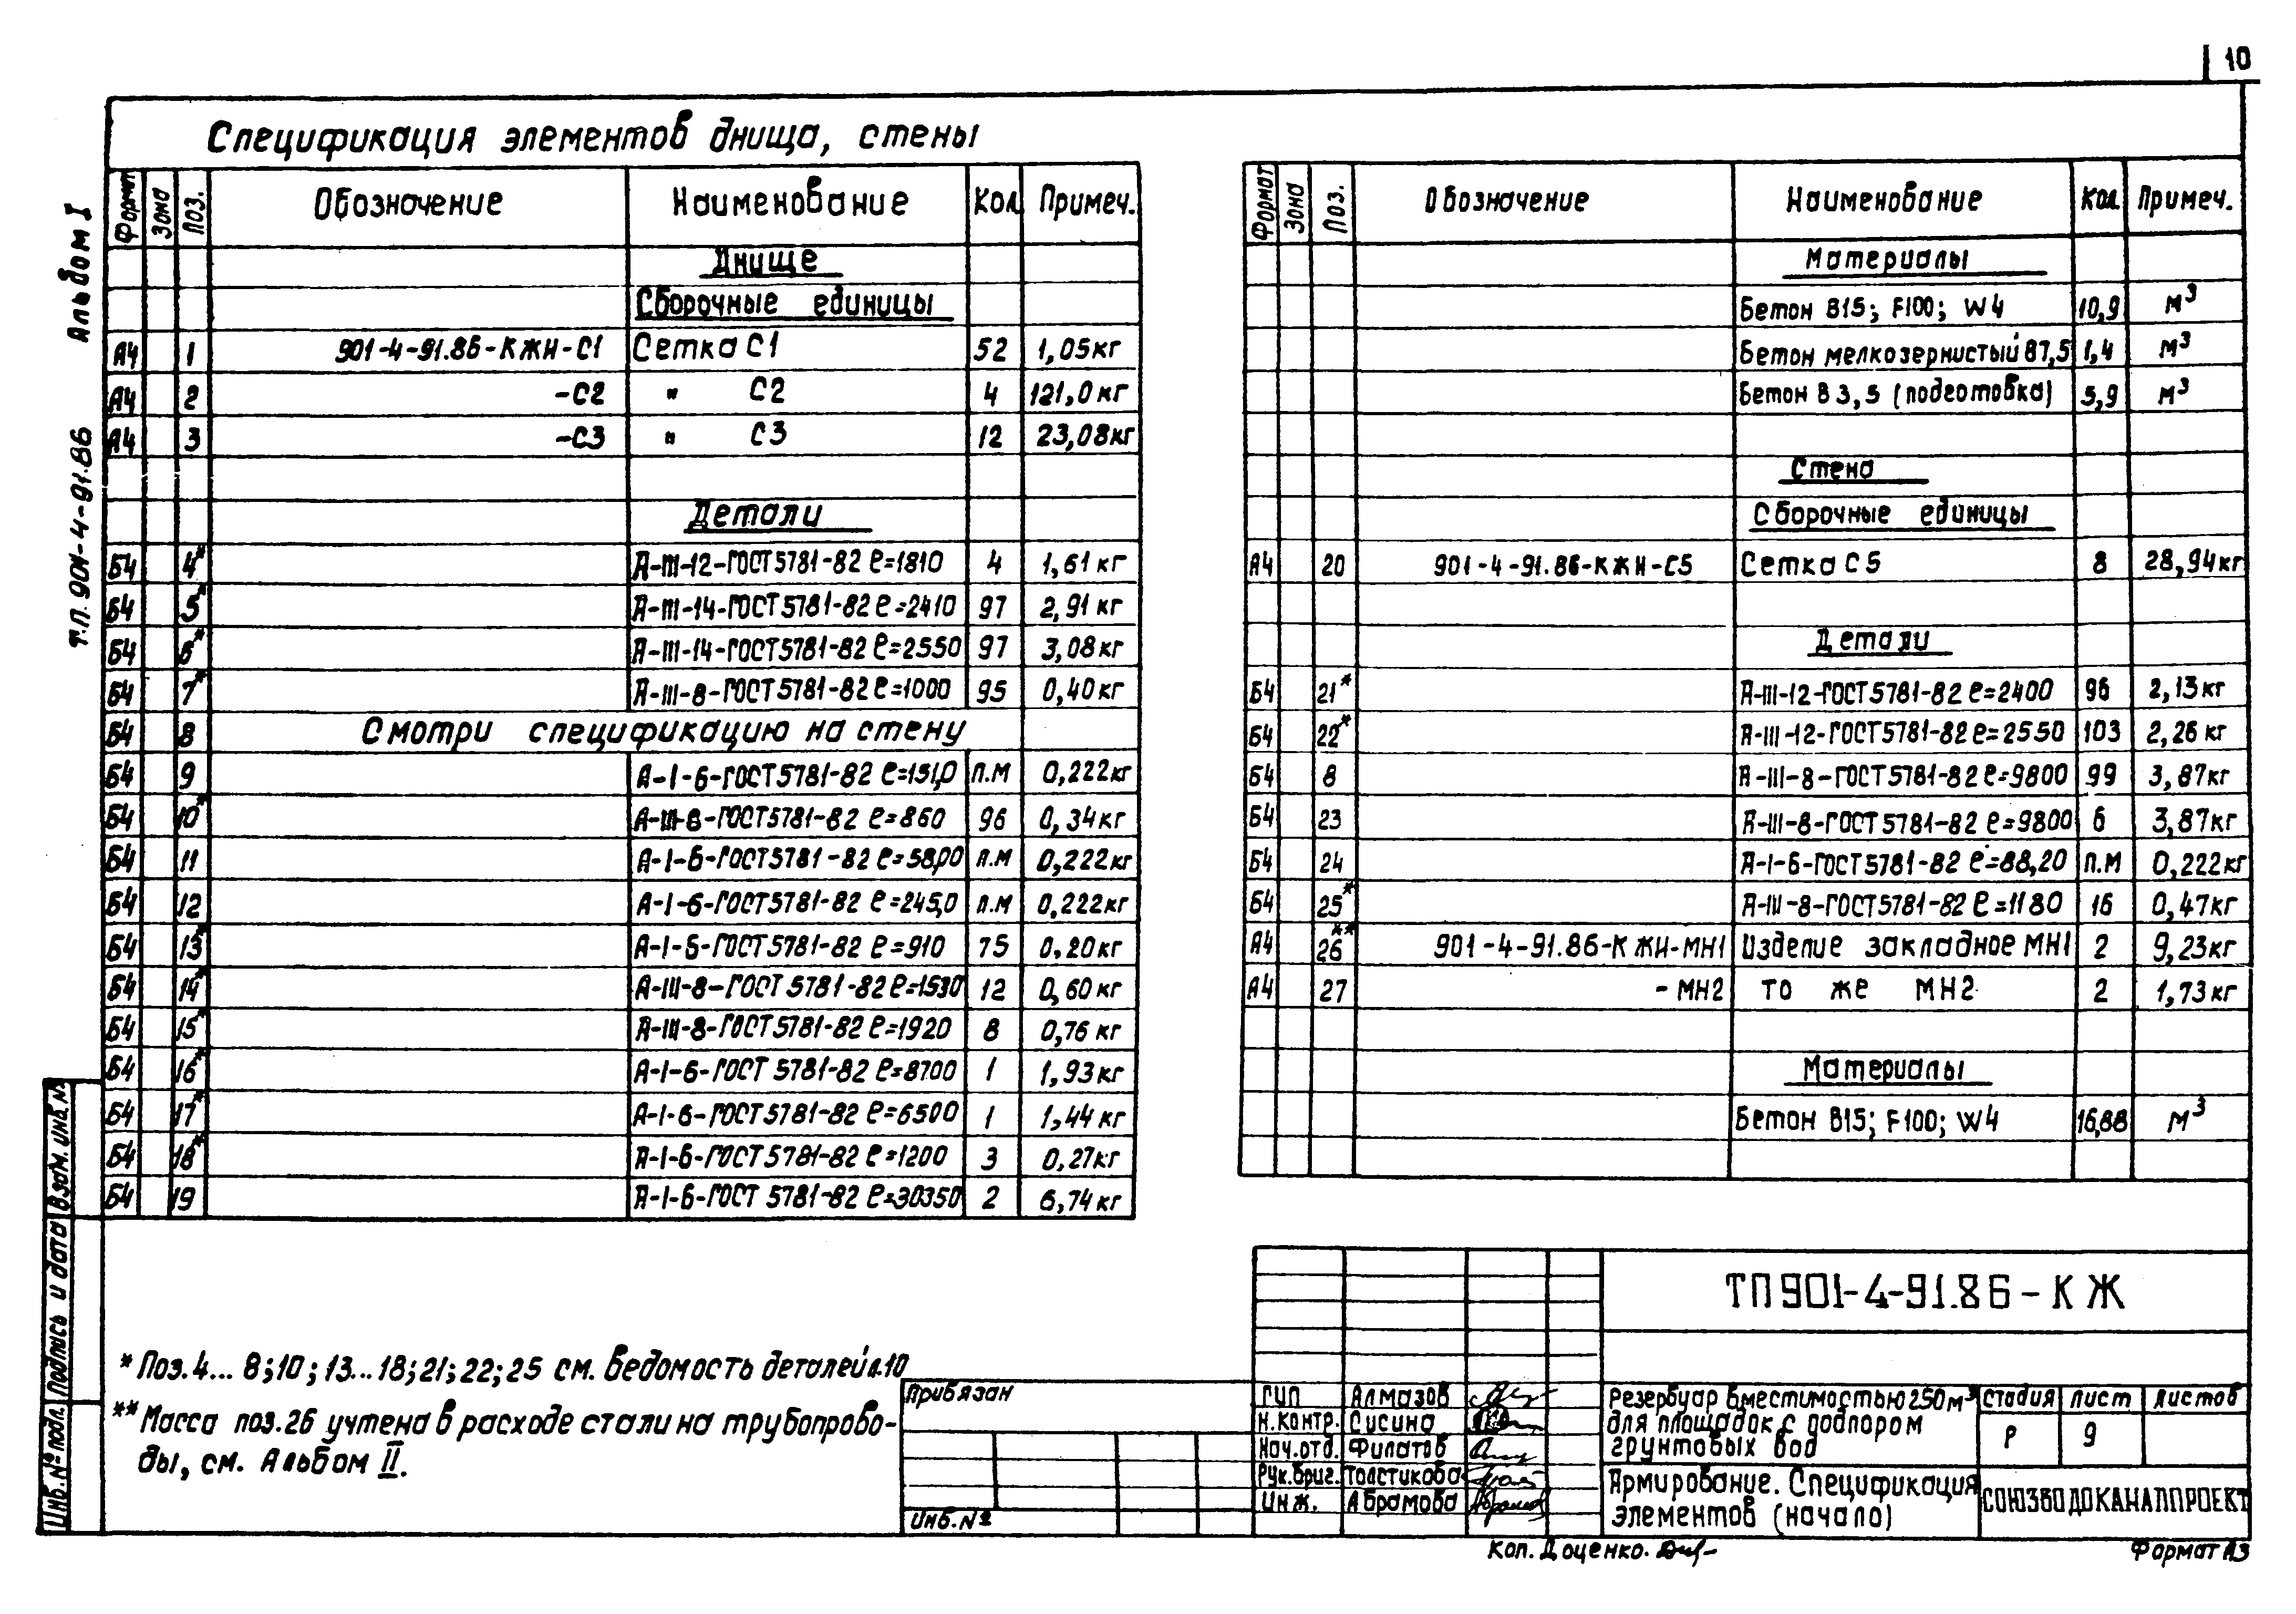 10
Альбом I
Т.П. 901-4-91.86
Спецификация элементов днища, стены
Формат Зона Поз. Обозначение Наименование Кол. Примеч.
Днище
Сборочные единицы
А4 1 901-4-91.86-КЖИ-С1 Сетка С1 52 1,05кг
А4 2 -С2 " С2 4 121,0кг
А4 3 -С3 " С3 12 23,08кг
Детали
Б4 4* А-III-12-ГОСТ5781-82 ℓ=1810 4 1,61кг
Б4 5* А-III-14-ГОСТ5781-82 ℓ=2410 97 2,91кг
Б4 6* А-III-14-ГОСТ5781-82 ℓ=2550 97 3,08кг
Б4 7* А-III-8-ГОСТ5781-82 ℓ=1000 95 0,40кг
Б4 8 Смотри спецификацию на стену
Б4 9 А-I-6-ГОСТ5781-82 ℓ=151,0 п.м 0,222кг
Б4 10* А-III-8-ГОСТ5781-82 ℓ=860 96 0,34кг
Б4 11 А-I-6-ГОСТ5781-82 ℓ=58,00 п.м 0,222кг
Б4 12 А-I-6-ГОСТ5781-82 ℓ=245,0 п.м 0,222кг
Б4 13* А-I-6-ГОСТ5781-82 ℓ=910 75 0,20кг
Б4 14* А-III-8-ГОСТ5781-82 ℓ=1530 12 0,60кг
Б4 15* А-III-8-ГОСТ5781-82 ℓ=1920 8 0,76кг
Б4 16* А-I-6-ГОСТ5781-82 ℓ=8700 1 1,93кг
Б4 17* А-I-6-ГОСТ5781-82 ℓ=6500 1 1,44кг
Б4 18* А-I-6-ГОСТ5781-82 ℓ=1200 3 0,27кг
Б4 19 А-I-6-ГОСТ 5781-82 ℓ=30350 2 6,74кг
Формат Зона Поз. Обозначение Наименование Кол. Примеч.
Материалы
Бетон В15; F100; W4 10,9 м³
Бетон мелкозернистый В7,5 1,4 м³
Бетон В3,5 (подготовка) 5,9 м³
Стена
Сборочные единицы
А4 20 901-4-91.86-КЖИ-С5 Сетка С5 8 28,94кг
Детали
Б4 21* А-III-12-ГОСТ5781-82 ℓ=2400 96 2,13кг
Б4 22* А-III-12-ГОСТ5781-82 ℓ=2550 103 2,26кг
Б4 8 А-III-8-ГОСТ5781-82 ℓ=9800 99 3,87кг
Б4 23 А-III-8-ГОСТ5781-82 ℓ=9800 6 3,87кг
Б4 24 А-I-6-ГОСТ5781-82 ℓ=88,20 п.м 0,222кг
Б4 25* А-III-8-ГОСТ5781-82 ℓ=1180 16 0,47кг
А4 26** 901-4-91.86-КЖИ-МН1 Изделие закладное МН1 2 9,23кг
А4 27 -МН2 то же МН2 2 1,73кг
Материалы
Бетон В15; F100; W4 16,88 м³
* Поз. 4... 8;10; 13...18;21;22;25 см. ведомость деталей л.10
** Масса поз.26 учтена в расходе стали на трубопрово-
ды, см. Альбом II.
Инв.№ подл. Подпись и дата Взам. инв. №
Привязан
Инв.№
ТП901-4-91.86-КЖ
ГИП Алмазов
Н.контр. Сисина
Нач.отд. Филатов
Рук.бриг. Толстикова
Инж. Абрамова
Резервуар вместимостью 250м³
для площадок с подпором
грунтовых вод
Стадия Лист Листов
Р 9
Армирование. Спецификация
элементов (начало)
СОЮЗВОДОКАНАЛПРОЕКТ
Коп. Доценко.
Формат А3